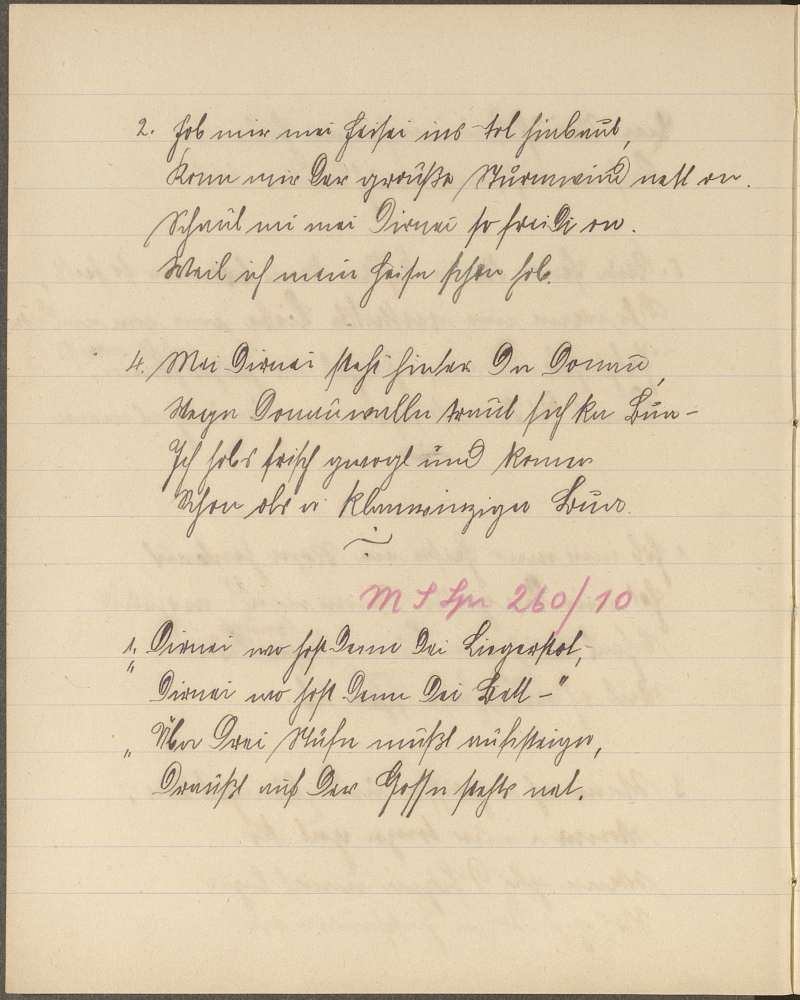 2. Hob mir mei Heisei ins Tol hinbaut,
Konn mir der grouße Sturmwind nett on.
Schaut mi mei Dirnei so freidi on.
Weil ich mein Heisn schon hob.
4. Mei Dirnei steht hinter da Donau,
Wega Donauwalln traut sich ka Bua –
Ich hobs frisch gwogt und komm
Schon als a klanwinziger Bua.
M S Spr 260/10
1. Dirnei wo host denn dei Liegerstot,
„Dirnei wo host denn dei Bett –"
„Über drei Stufn mußt aufisteiga,
Draußt auf der Gossn stehts net.